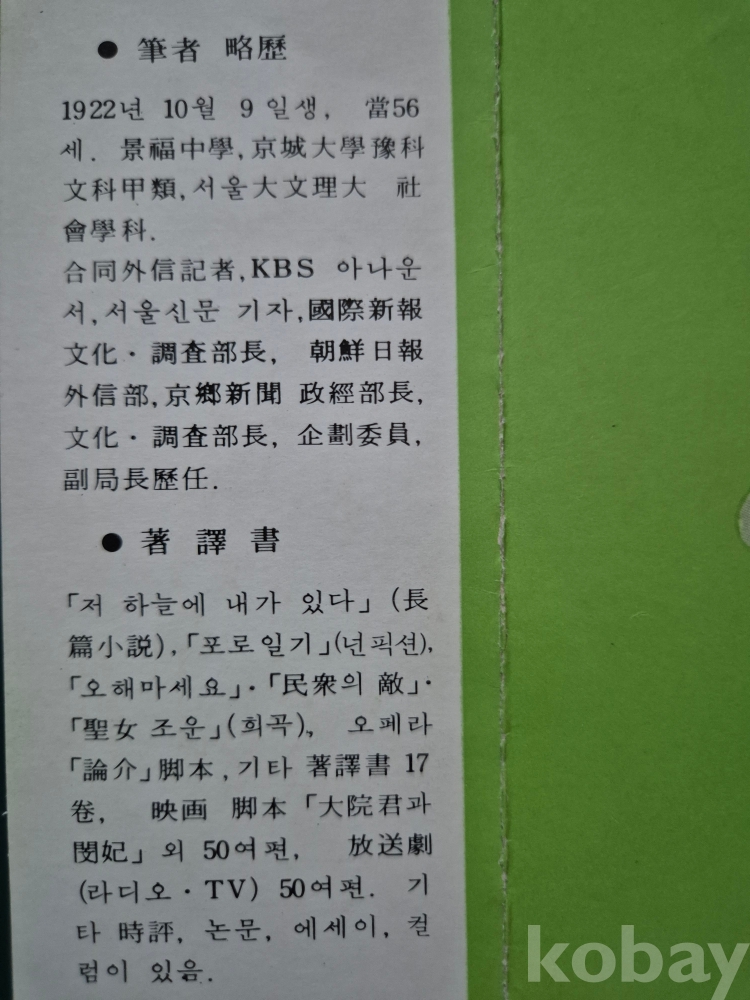 ● 筆者 略歷
1922년 10월 9일생, 當56
세. 景福中學,京城大學豫科
文科甲類,서울大文理大 社
會學科.
合同外信記者,KBS 아나운
서,서울신문 기자,國際新報
文化·調査部長, 朝鮮日報
外信部,京鄕新聞 政經部長,
文化·調査部長, 企劃委員,
副局長歷任.
● 著譯書
「저 하늘에 내가 있다」(長
篇小説),「포로일기」(넌픽션),
「오해마세요」·「民衆의 敵」·
「聖女 조운」(희곡), 오페라
「論介」脚本,기타 著譯書 17
卷, 映画 脚本「大院君과
閔妃」외 50여편, 放送劇
(라디오·TV) 50여편. 기
타 時評, 논문, 에세이, 컬
럼이 있음.
kobay